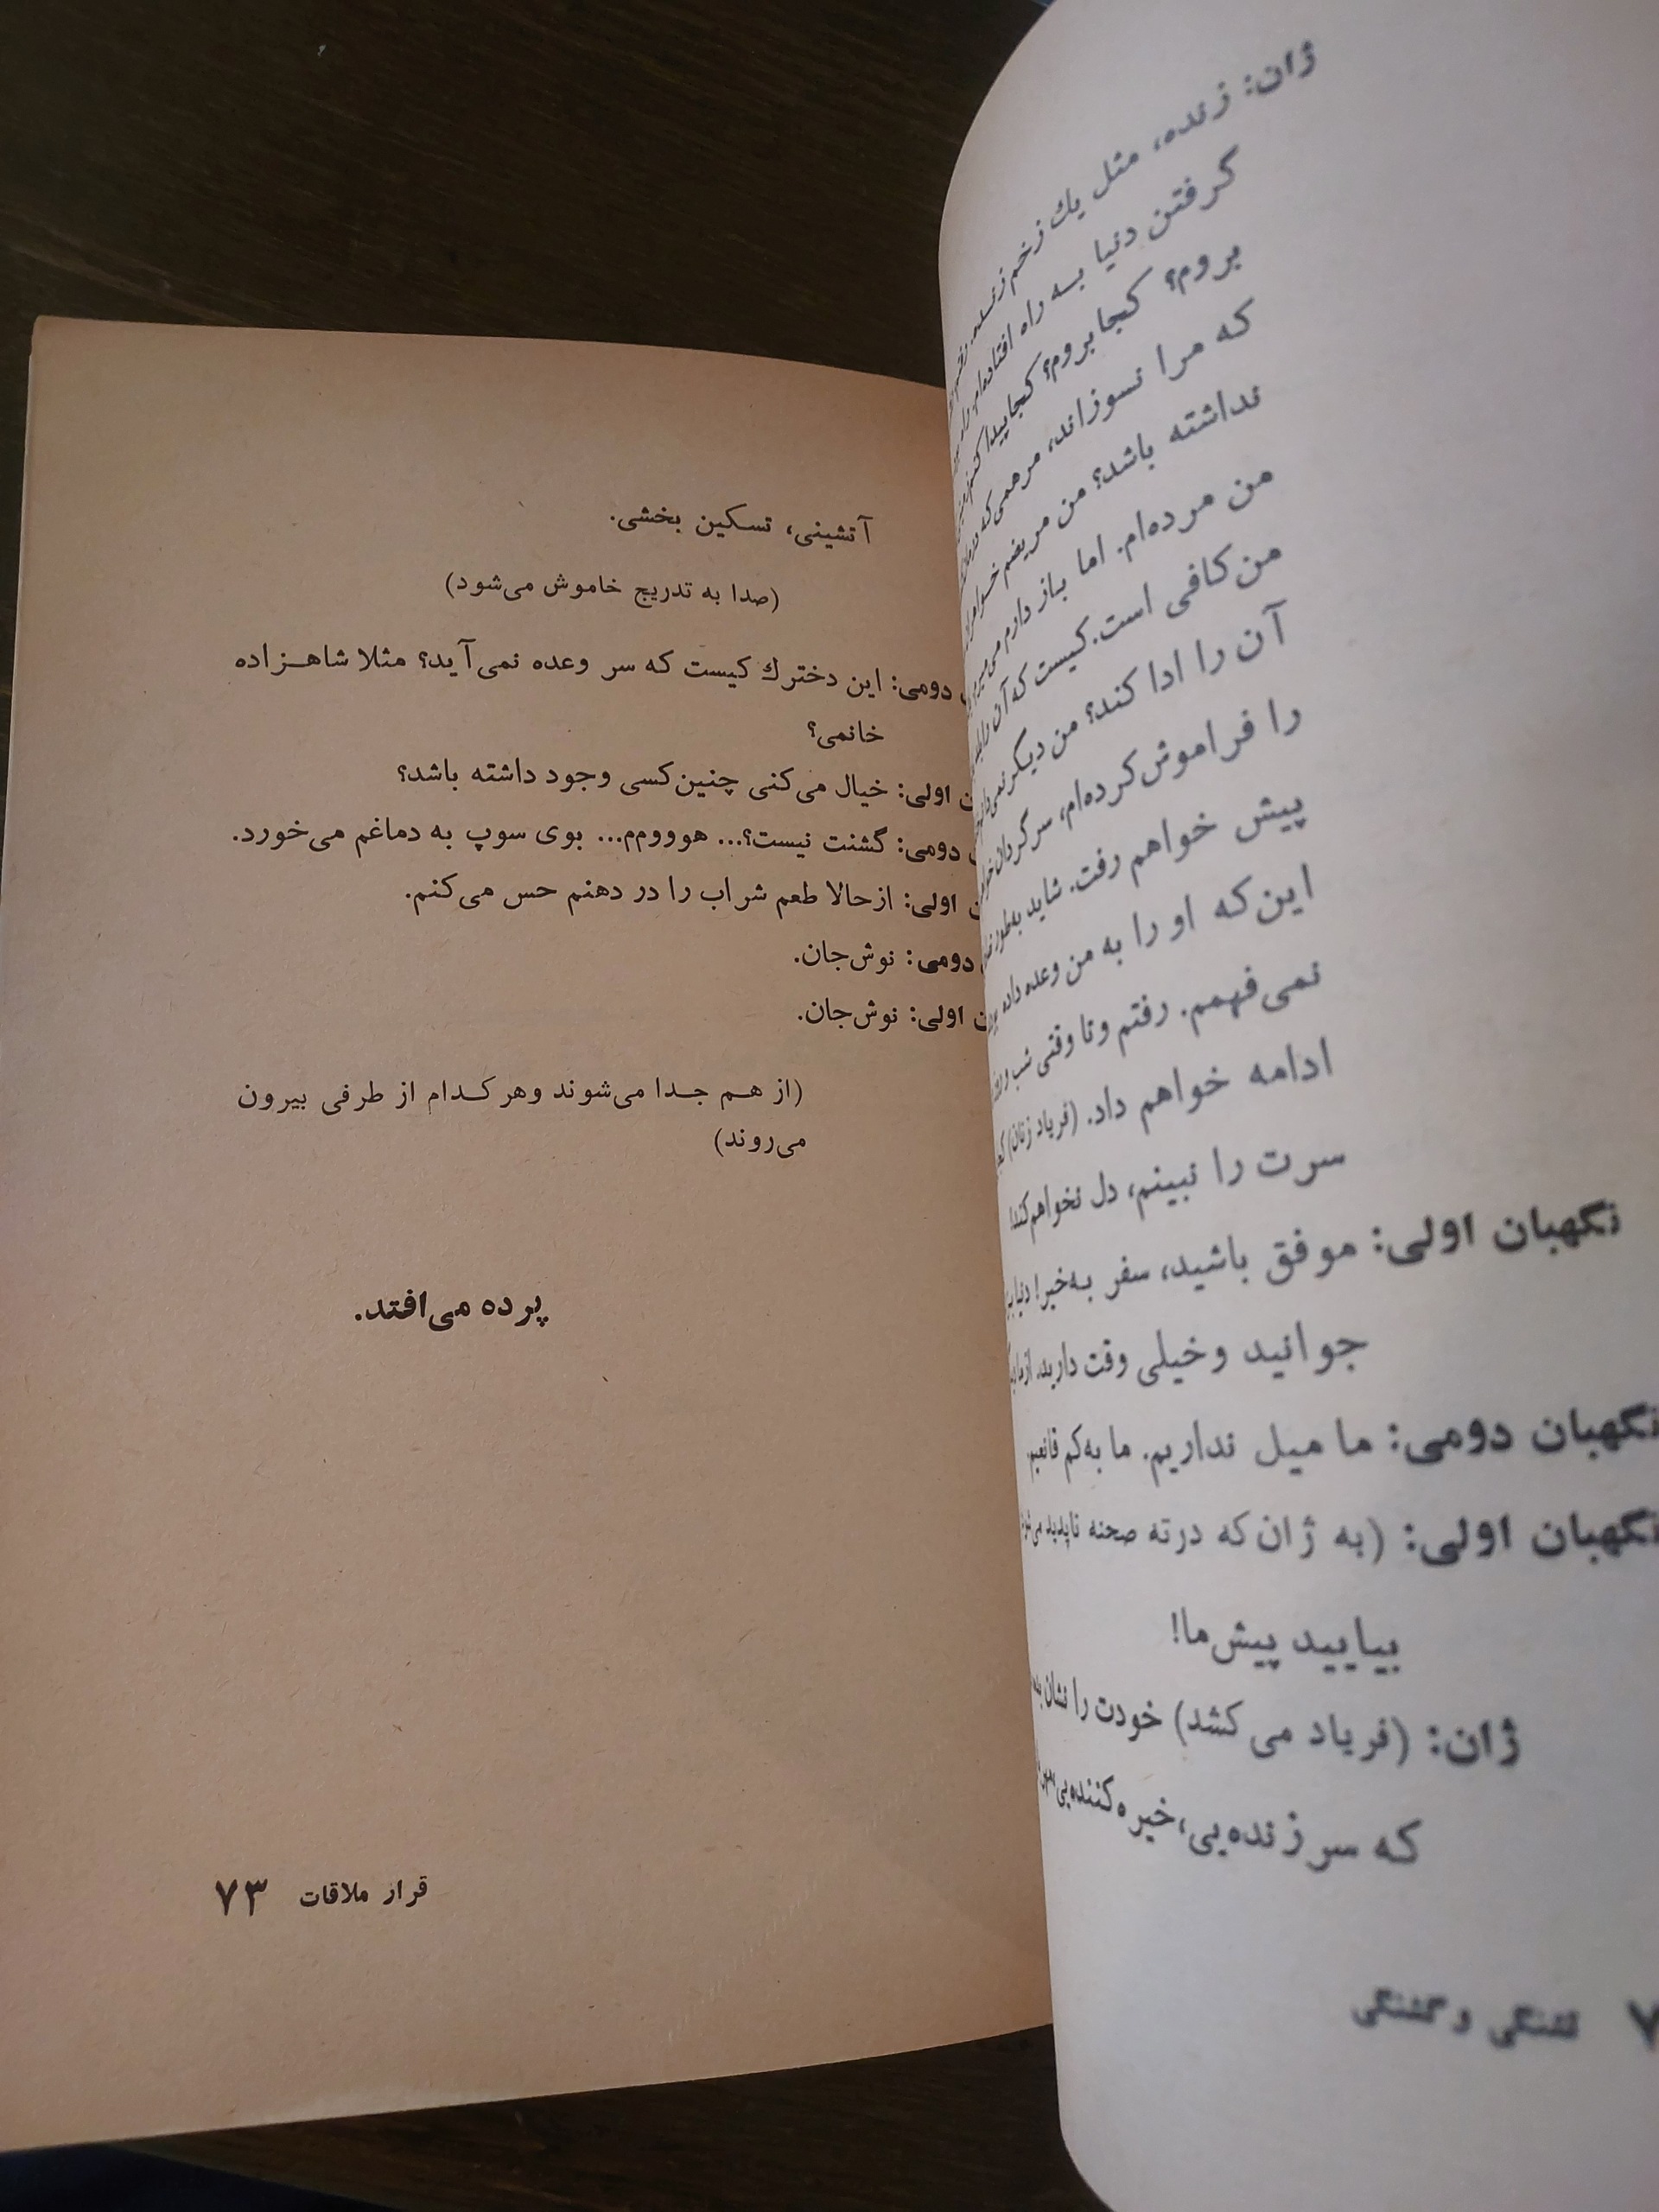 ژان: زنده، مثل يك زخم زنده.
گرفتن دنیا به راه افتاده‌ام. راه
بروم؟ کجا بروم؟ کجا پیدا کنم
که مرا نسوزاند، مرهمی که
نداشته باشد؟ من مریضم
من مرده‌ام. اما باز دارم می‌میرم
من کافی است. کیست که آن را
آن را ادا کند؟ من دیگر
را فراموش کرده‌ام، سرگردان
پیش خواهم رفت. شاید به‌طور
این‌که او را به من وعده داده
نمی‌فهمم. رفتم و تا وقتی شب و
ادامه خواهم داد. (فریاد زنان)
سرت را نبینم، دل نخواهم کند!
نگهبان اولی: موفق باشید، سفر به‌خیر! دنیا
جوانید و خیلی وقت دارید.
نگهبان دومی: ما میل نداریم. ما به‌کم قانعیم.
نگهبان اولی: (به ژان که درته صحنه ناپدید
بیایید پیش‌ما!
ژان: (فریاد می‌کشد) خودت را نشان
که سرزنده‌یی، خیره‌کننده‌یی
۷ تشنگی و گشنگی
آتشینی، تسکین بخشی.
(صدا به تدریج خاموش می‌شود)
دومی: این دخترك کیست که سر وعده نمی‌آید؟ مثلا شاهزاده
خانمی؟
اولی: خیال می‌کنی چنین‌کسی وجود داشته باشد؟
دومی: گشنت نیست؟... هوووم‌م... بوی سوپ به دماغم می‌خورد.
اولی: ازحالا طعم شراب را در دهنم حس می‌کنم.
دومی: نوش‌جان.
اولی: نوش‌جان.
(از هم جدا می‌شوند و هر کدام از طرفی بیرون
می‌روند)
پرده می‌افتد.
قرار ملاقات ۷۳